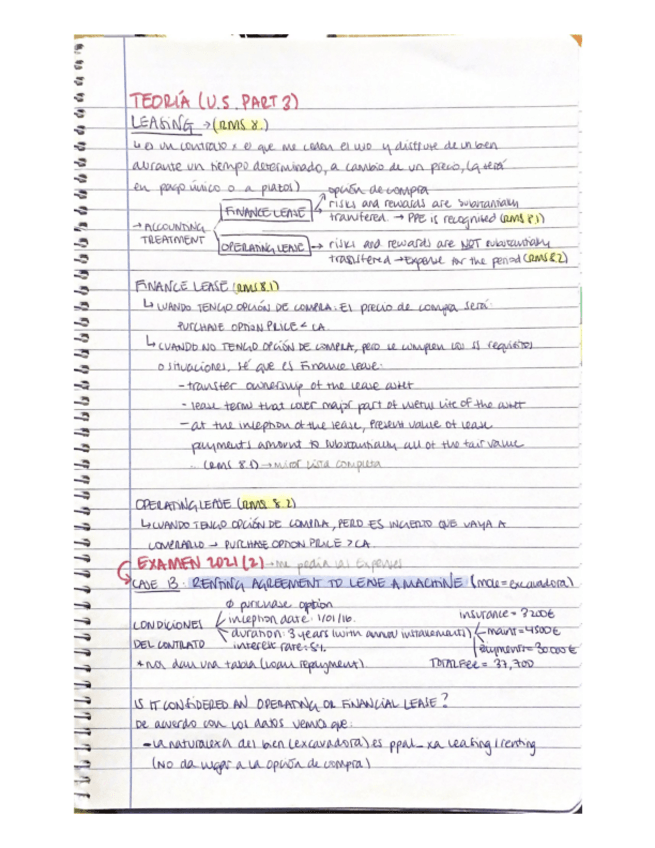 TEORÍA (U.S. PART 3)
LEASING → (RMS 8.)
↳ es un contrato x el que me ceden el uso y disfrute de un bien
durante un tiempo determinado, a cambio de un precio, (q será
en pago único o a plazos)
opción de compra
FINANCE LEASE → risks and rewards are substantially
transfered → PPE is recognised (RMS 8.1)
→ ACCOUNTING
TREATMENT
OPERATING LEASE → risks and rewards are NOT substantially
transfered → Expense for the period (RMS 8.2)
FINANCE LEASE (RMS 8.1)
↳ CUANDO TENGO OPCIÓN DE COMPRA: El precio de compra será:
PURCHASE OPTION PRICE < CA
↳ CUANDO NO TENGO OPCIÓN DE COMPRA, pero se cumplen los requisitos
o situaciones, sé que es Finance lease:
- transfer ownership of the lease asset
- lease term that cover major part of useful life of the asset
- at the inception of the lease, Present value of lease
payments amount to substantially all of the fair value
... (RMS 8.1) → mirar lista completa
OPERATING LEASE (RMS 8.2)
↳ CUANDO TENGO OPCIÓN DE COMPRA, PERO ES INCIERTO QUE VAYA A
COMPRARLO → PURCHASE OPTION PRICE > CA
EXAMEN 2021 (2) → me pedía las expenses
CASE B: RENTING AGREEMENT TO LEASE A MACHINE (máq = excavadora)
CONDICIONES
DEL CONTRATO
∅ purchase option
inception date: 1/01/16.
duration: 3 years (with annual installments)
interest rate: 5%
Insurance = 3200€
maint = 4500€
payments = 30000€
TOTAL Fee = 37,700
* nos dan una tabla (loan repayment)
IS IT CONSIDERED AN OPERATING OR FINANCIAL LEASE?
De acuerdo con los datos vemos que:
- La naturaleza del bien (excavadora) es ppal. xa leasing / renting
(NO da lugar a la opción de compra)